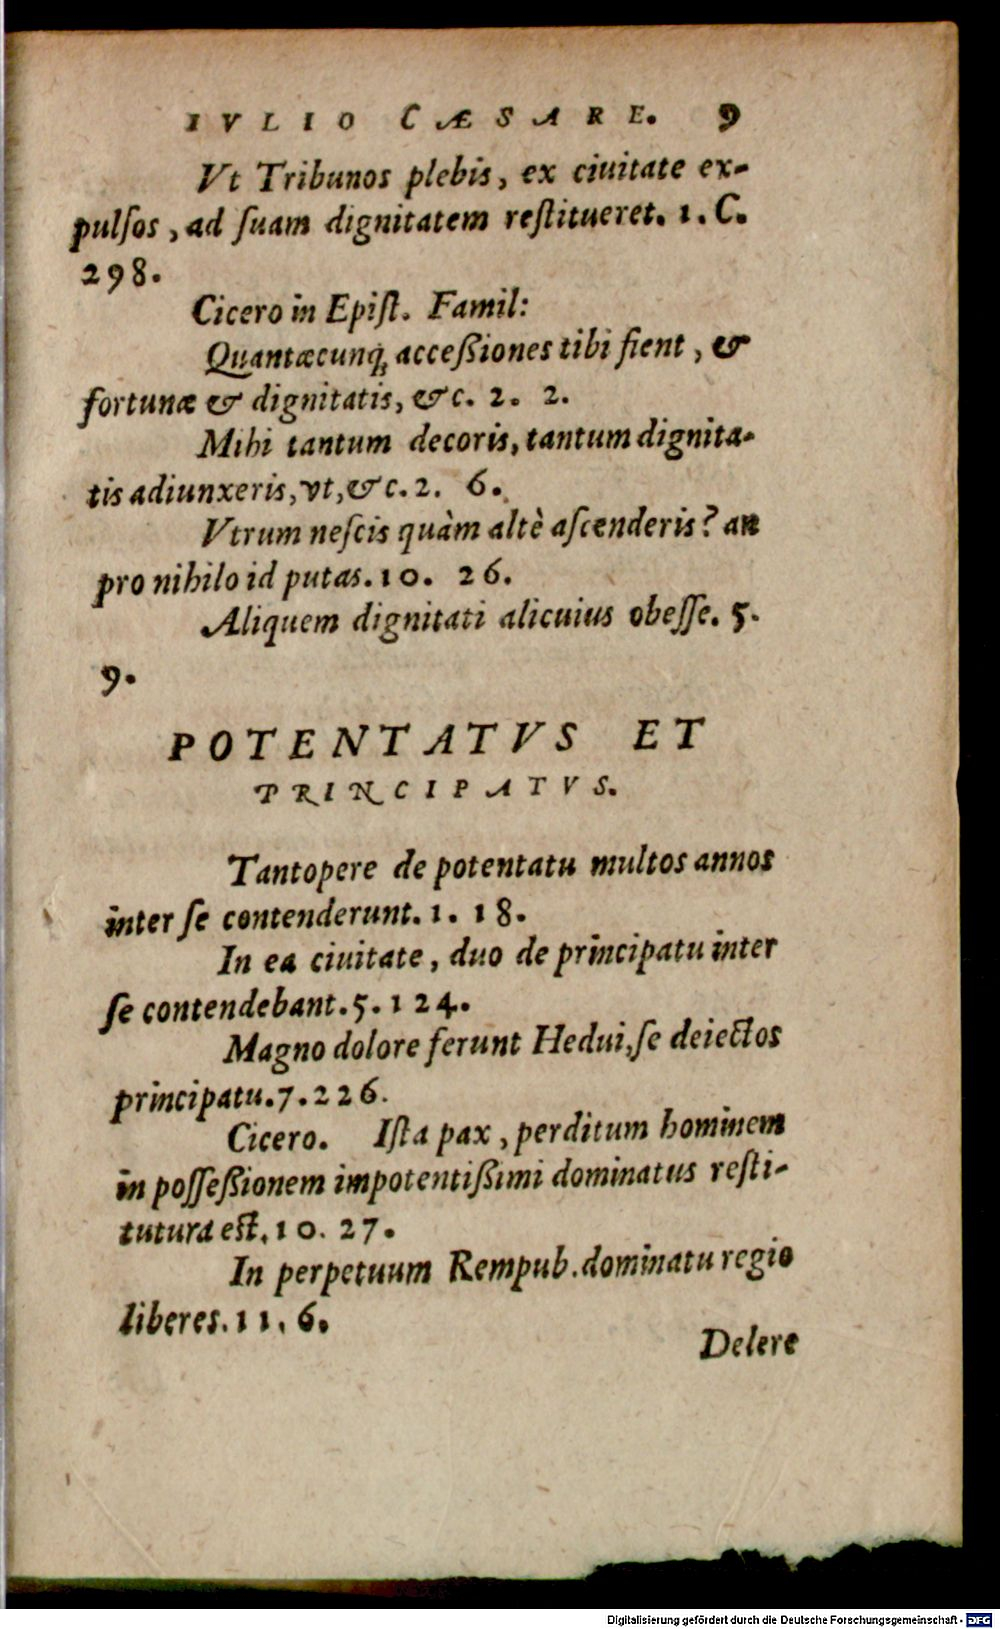 IVLIO CÆSARE. 9
Vt Tribunos plebis, ex ciuitate ex-
pulſos, ad ſuam dignitatem reſtitueret. 1. C.
298.
Cicero in Epiſt. Famil:
Quantæcunq; acceßiones tibi fient, &
fortunæ & dignitatis, &c. 2. 2.
Mihi tantum decoris, tantum dignita-
tis adiunxeris, vt, &c. 2. 6.
Vtrum neſcis quàm altè aſcenderis? an
pro nihilo id putas. 10. 26.
Aliquem dignitati alicuius obeſſe. 5.
9.
POTENTATVS ET
PRINCIPATVS.
Tantopere de potentatu multos annos
inter ſe contenderunt. 1. 18.
In ea ciuitate, duo de principatu inter
ſe contendebant. 5. 124.
Magno dolore ferunt Hedui, ſe deiectos
principatu. 7. 226.
Cicero. Iſta pax, perditum hominem
in poſſeßionem impotentißimi dominatus reſti-
tutura est. 10. 27.
In perpetuum Rempub. dominatu regio
liberes. 11. 6.
Delere
Digitalisierung gefördert durch die Deutsche Forschungsgemeinschaft - DFG